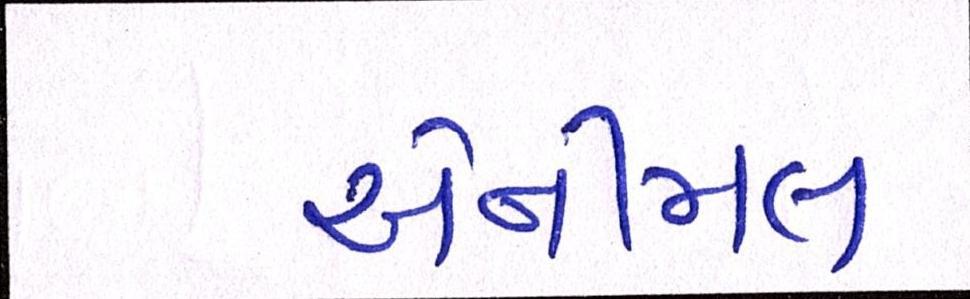 એનીમલ